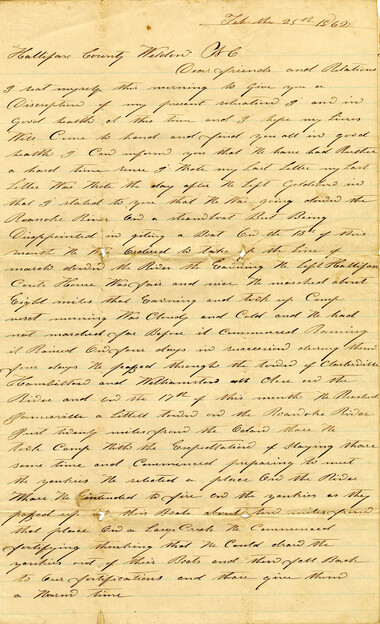 Feb the 25th 1862
Hallifax County Weldon N C
Dear friends and Relations
I seat myself this morning to Give you a
Discription of my present situation I am in
Good health at this time and I hope my lines
Will Come to hand and find you all in good
health I Can inform you that We have had Rather
a hard time since I Wrote my Last Letter my Last
Letter Was Wrote the day after We Left Goldsboro in
that I stated to you that We Was going down the
Roanoke River On a steamboat But Being
Disappointed in giting a Boat On the 13th of this
month We Was Ordered to take up the line of
march down the River the Evening We left Hallifax
Court House Was fair and nice We marched about
Eight miles that Evening and took up Camp
next morning Was Cloudy and Cold and We had
not marched far Before it Commenced Raining
it Rained On four days in succession during them
four days We passed through the towns of Clarksville
Hambilton and Williamston all Close on the
River and on the 17th of this month We Reached
Jamesville a Littell town on the Roanoke River
Just twenty miles from the thare We
took Camp With the Expectation of staying thare
some time and Commenced preparing to meet
the yankies We selected a place On the River
Whare We intended to fire on the yankies as they
passed up in thir Boats about two miles from
that place On a Large Creek We Commenced
fortifying thinking that We Could
yankies out of their Boats and then fall Back
to Our fortifications and thare give them
a Warm time